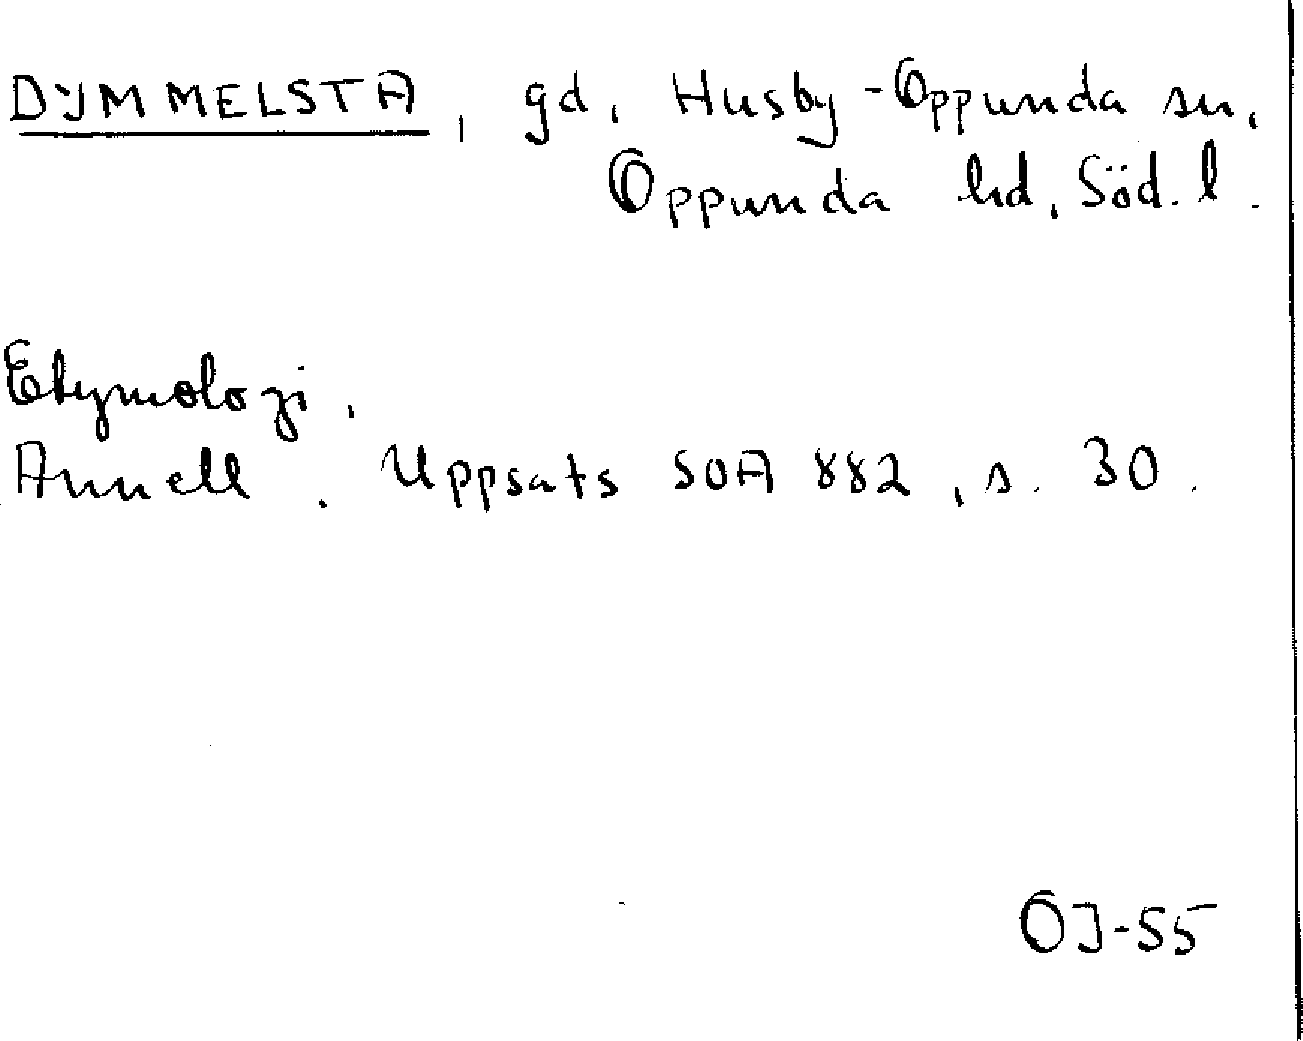 DYMMELSTA, gd, Husby-Oppunda sn,
Oppunda hd, Söd. l.
Etymologi.
Annell. Uppsats SOA 882, s. 30.
OJ-55